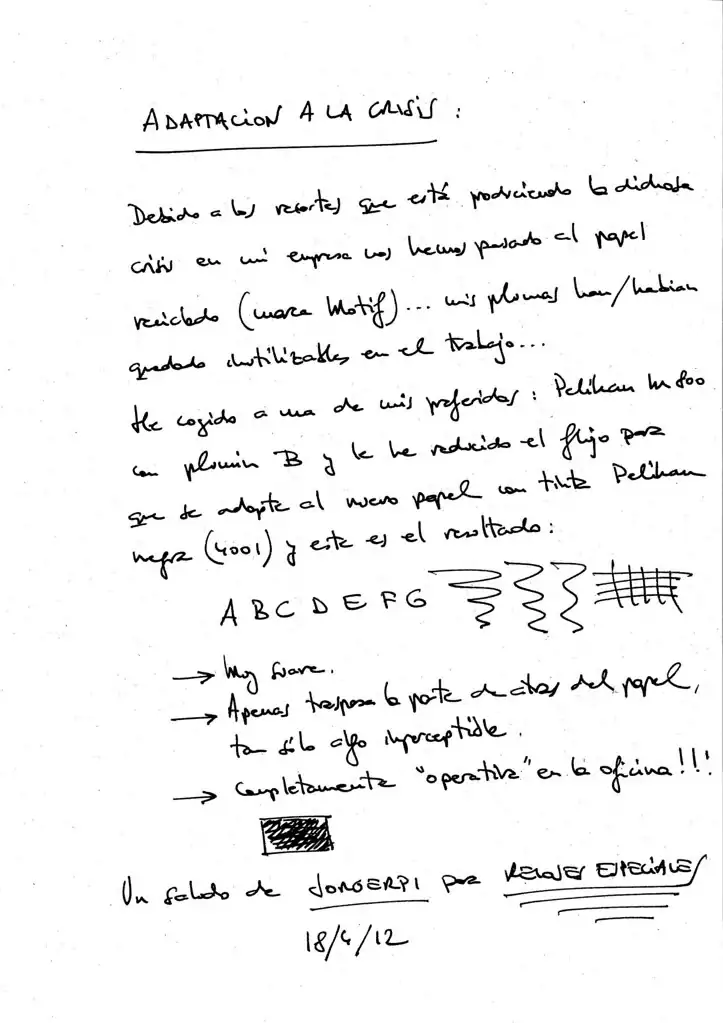 ADAPTACION A LA CRISIS :
Debido a los recortes que está produciendo la dichosa
crisis en mi empresa nos hemos pasado al papel
reciclado (marca Motif)... mis plumas han/habian
quedado inutilizables en el trabajo...
He cogido a una de mis preferidas : Pelikan M800
con plumin B y le he reducido el flujo para
que se adapte al nuevo papel con tinta Pelikan
negra (4001) y este es el resultado :
A B C D E F G
→ Muy suave.
→ Apenas traspasa la parte de atras del papel,
tan sólo algo imperceptible.
→ Completamente "operativa" en la oficina!!!
Un saludo de JORGERPI para RELOJES ESPECIALES
18/4/12